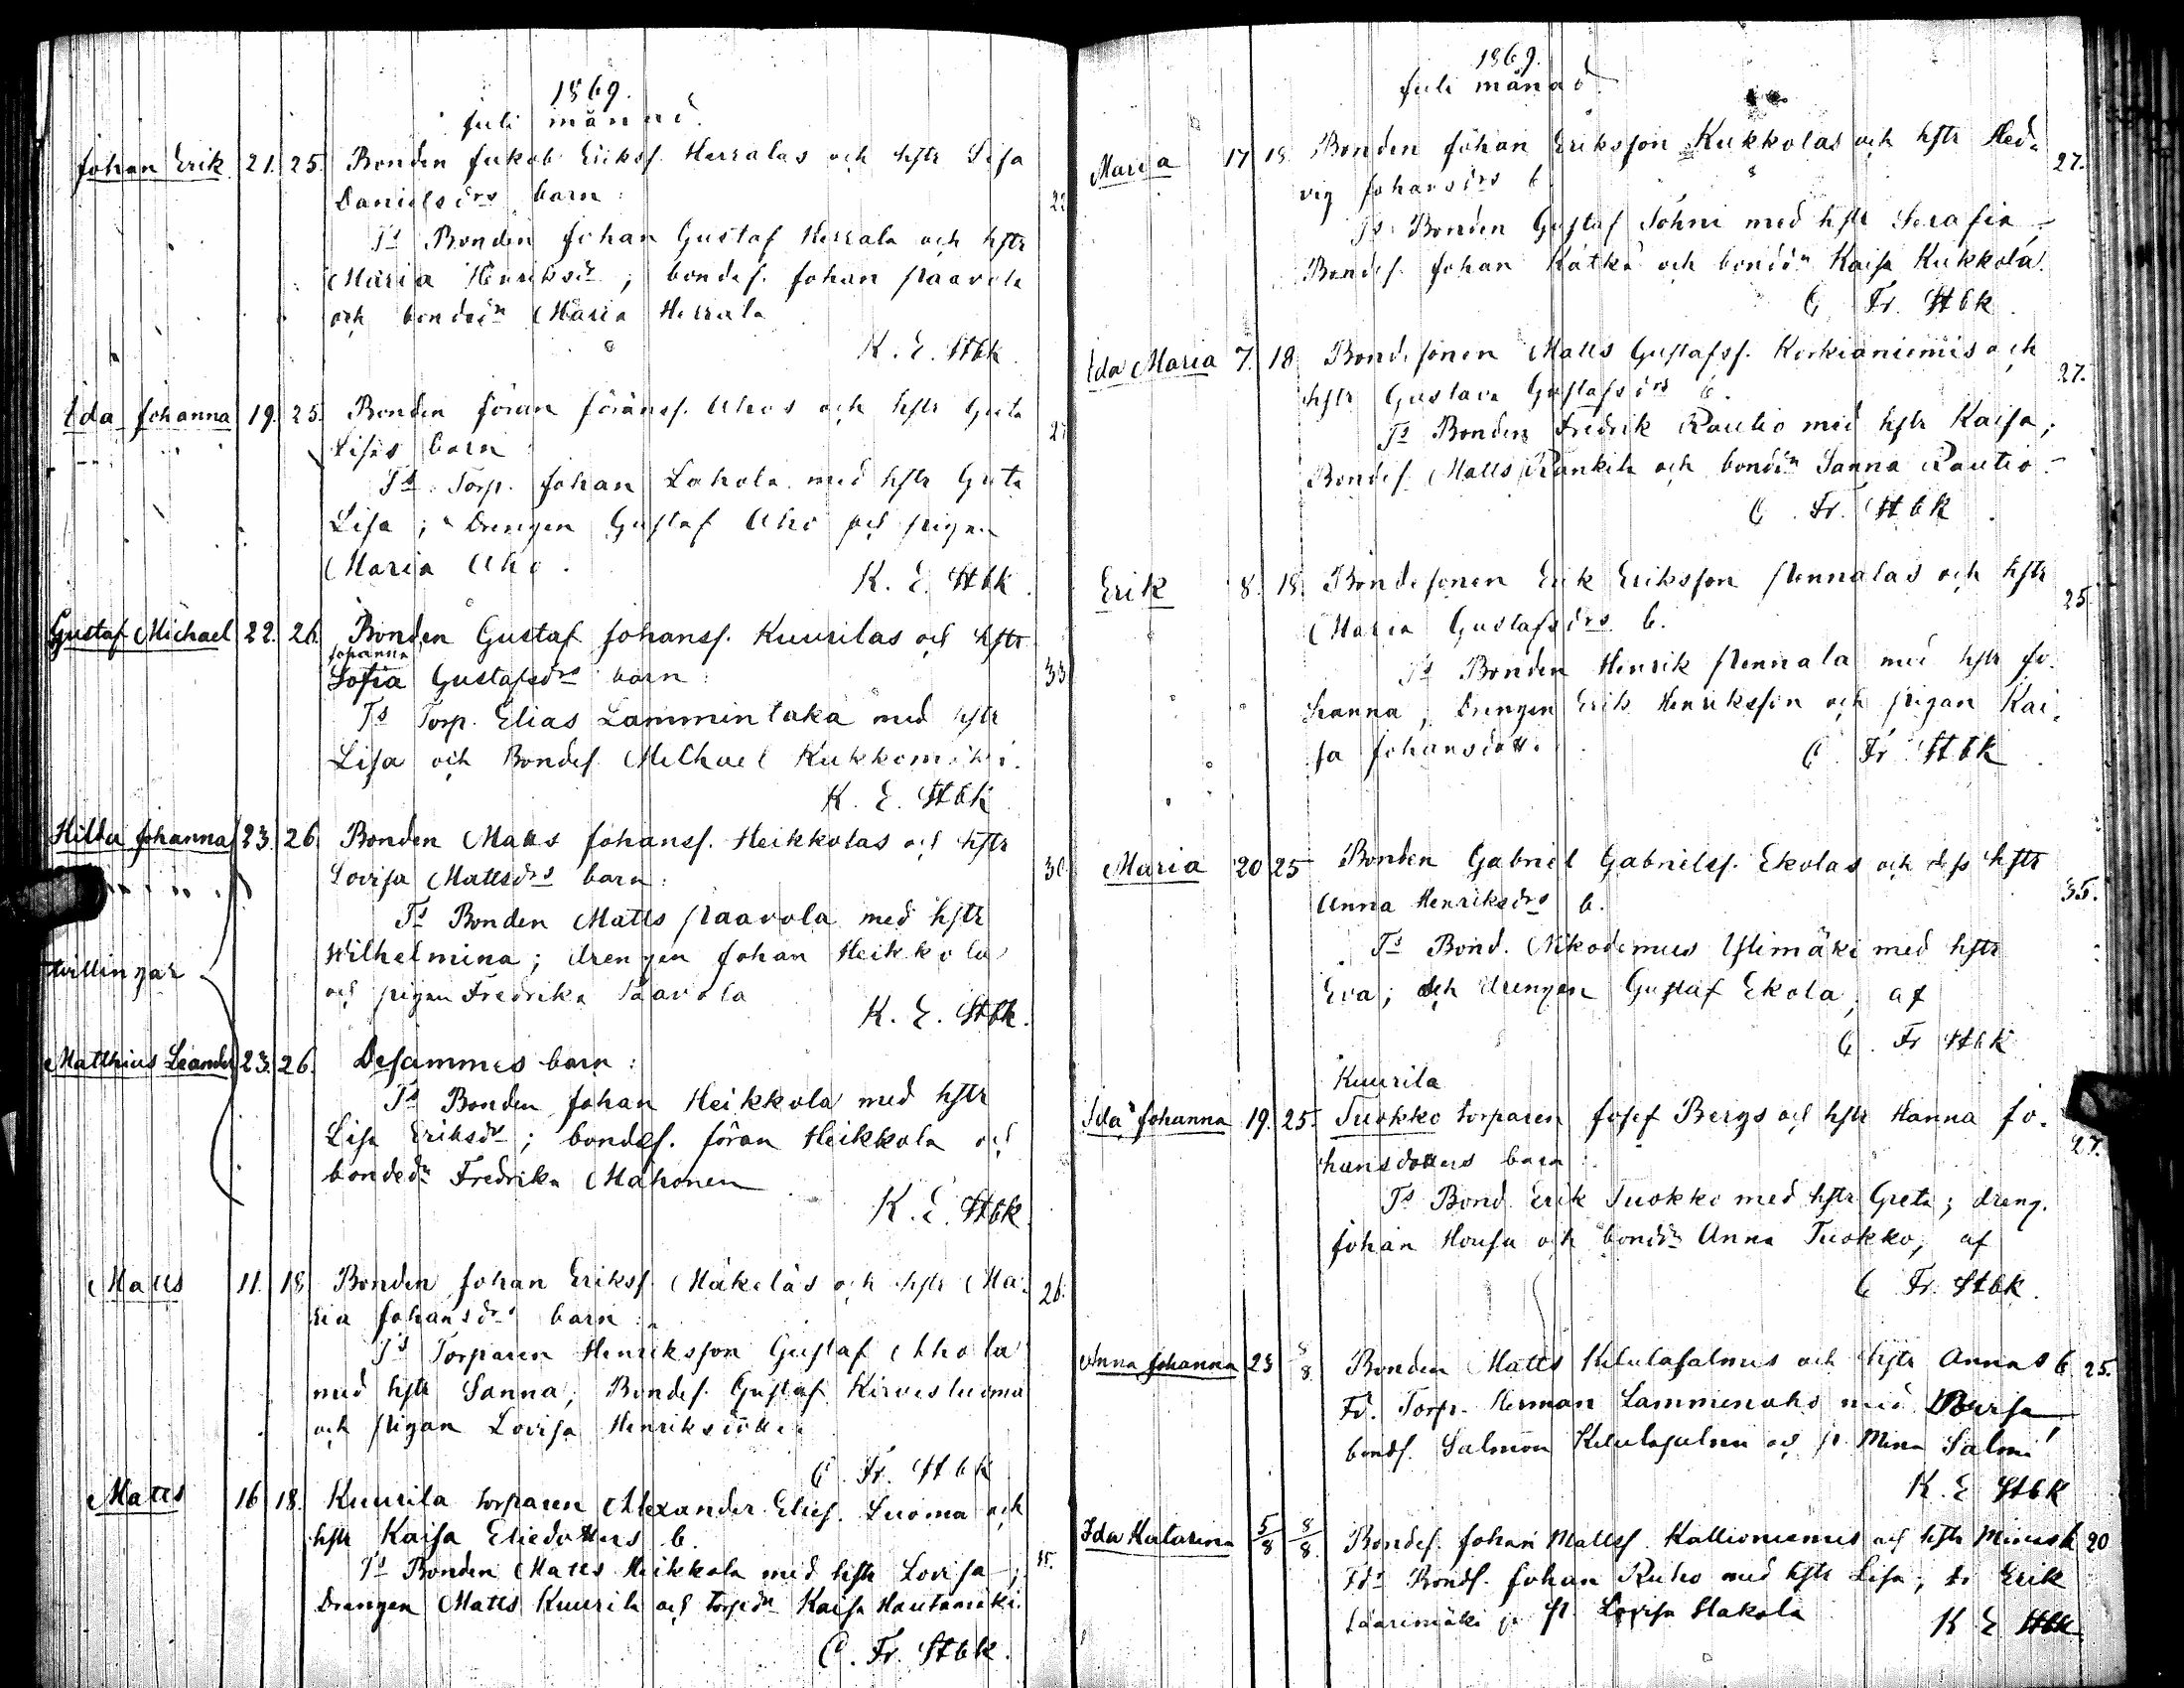 1869.
Juli månad.
Johan Erik 21. 25. Bonden Jakob Erikss. Herralas och hstr Lisa
Danielsdrs barn:
Ts Bonden Johan Gustaf Herrala och hstr
Maria Henriksdr; bondes. Johan Paavola
och bondedn Maria Herrala
K. E. Stbk.
Ida Johanna 19. 25. Bonden Jöran Jöranss. Ahos och hstr Greta
Lisas barn
Ts Torp. Johan Lahola med hstr Greta
Lisa; drengen Gustaf Aho och pigan
Maria Aho.
K. E. Stbk.
Gustaf Michael 22. 26. Bonden Gustaf Johanss. Kuurilas och hstr
Johanna
Sofia Gustafsdrs barn: 33
Ts Torp. Elias Lammintaka med hstr
Lisa och Bondes. Michael Kukkomäki.
K. E. Stbk
Hilda Johanna 23. 26. Bonden Matts Johanss. Heikkolas och hstr
Lovisa Mattsdrs barn: 30
Ts Bonden Matts Paavola med hstr
Wilhelmina; drengen Johan Heikkola
tvillingar
och pigan Fredrika Paavola
K. E. Stbk.
Matthias Leander 23. 26. Desammes barn:
Ts Bonden Johan Heikkola med hstr
Lisa Eriksdr; bondes. Jöran Heikkola och
bondedn Fredrika Mahonen
K. E. Stbk
Matts 11. 18 Bonden Johan Erikss. Mäkeläs och hstr Ma-
ria Johansdrs barn: 26.
Ts Torparen Henriksson Gustaf Ahola
med hstr Sanna; Bondes. Gustaf Kirvesluoma
och pigan Lovisa Henriksdotter
C. Fr. Stbk
Matts 16 18. Kuurila torparen Alexander Elies. Luoma och
hstr Kaisa Eliedotters b.
Ts Bonden Matts Heikkola med hstr Lovisa; 35.
Drengen Matts Kuurila och torpedn Kaisa Hautamäki.
C. Fr. Stbk.
1869.
Juli månad
Maria 17 18. Bonden Johan Eriksson Kukkolas och hstr Hed-
vig Johansdrs b 27.
Ts Bonden Gustaf Tohni med hstr Serafia
Bondes. Johan Katka och bonddn Kaisa Kukkola.
C Fr. Stbk.
Ida Maria 7. 18 Bondesonen Matts Gustafss. Korkianiemis och
hstr Gustava Gustafsdrs b. 27.
Ts Bonden Fredrik Rautio med hstr Kaisa;
Bondes. Matts Rankila och bonddn Sanna Rautio.
C. Fr. Stbk
Erik 8. 18. Bondesonen Erik Eriksson Pennalas och hstr
Maria Gustafsdrs b. 25.
Ts Bonden Henrik Pennala med hstr Jo-
hanna; drengen Erik Henriksson och pigan Kai-
sa Johansdotter
C. Fr. Stbk
Maria 20 25 Bonden Gabriel Gabrielss. Ekolas och dess hstr
Anna Henriksdrs b. 35.
Ts Bond. Nikodemus Ylimäki med hstr
Eva; och drengen Gustaf Ekola; af
C. Fr Stbk
Kuurila
Ida Johanna 19. 25. Tuokko torparen Josef Bergs och hstr Hanna Jo-
hansdotters barn: 27.
Ts Bond Erik Tuokko med hstr Greta; dreng.
Johan Housu och bonddn Anna Tuokko; af
C Fr. Stbk.
Anna Johanna 23 8/8 Bonden Matts Kelulasalmis och hstr Annas b. 25.
Fd. Torp. Herman Lammenaho med Lovisa
bonds. Salmon Kelulasalmi och p. Mina Salmi
K. E Stbk
Ida Katarina 5/8 8/8. Bondes. Johan Mattss. Kallioniemis och hstr Minas b 20
Fds Bonds. Johan Ruho med hstr Lisa; dr Erik
Saarimäki p. Lovisa Hakola
K E Stbk